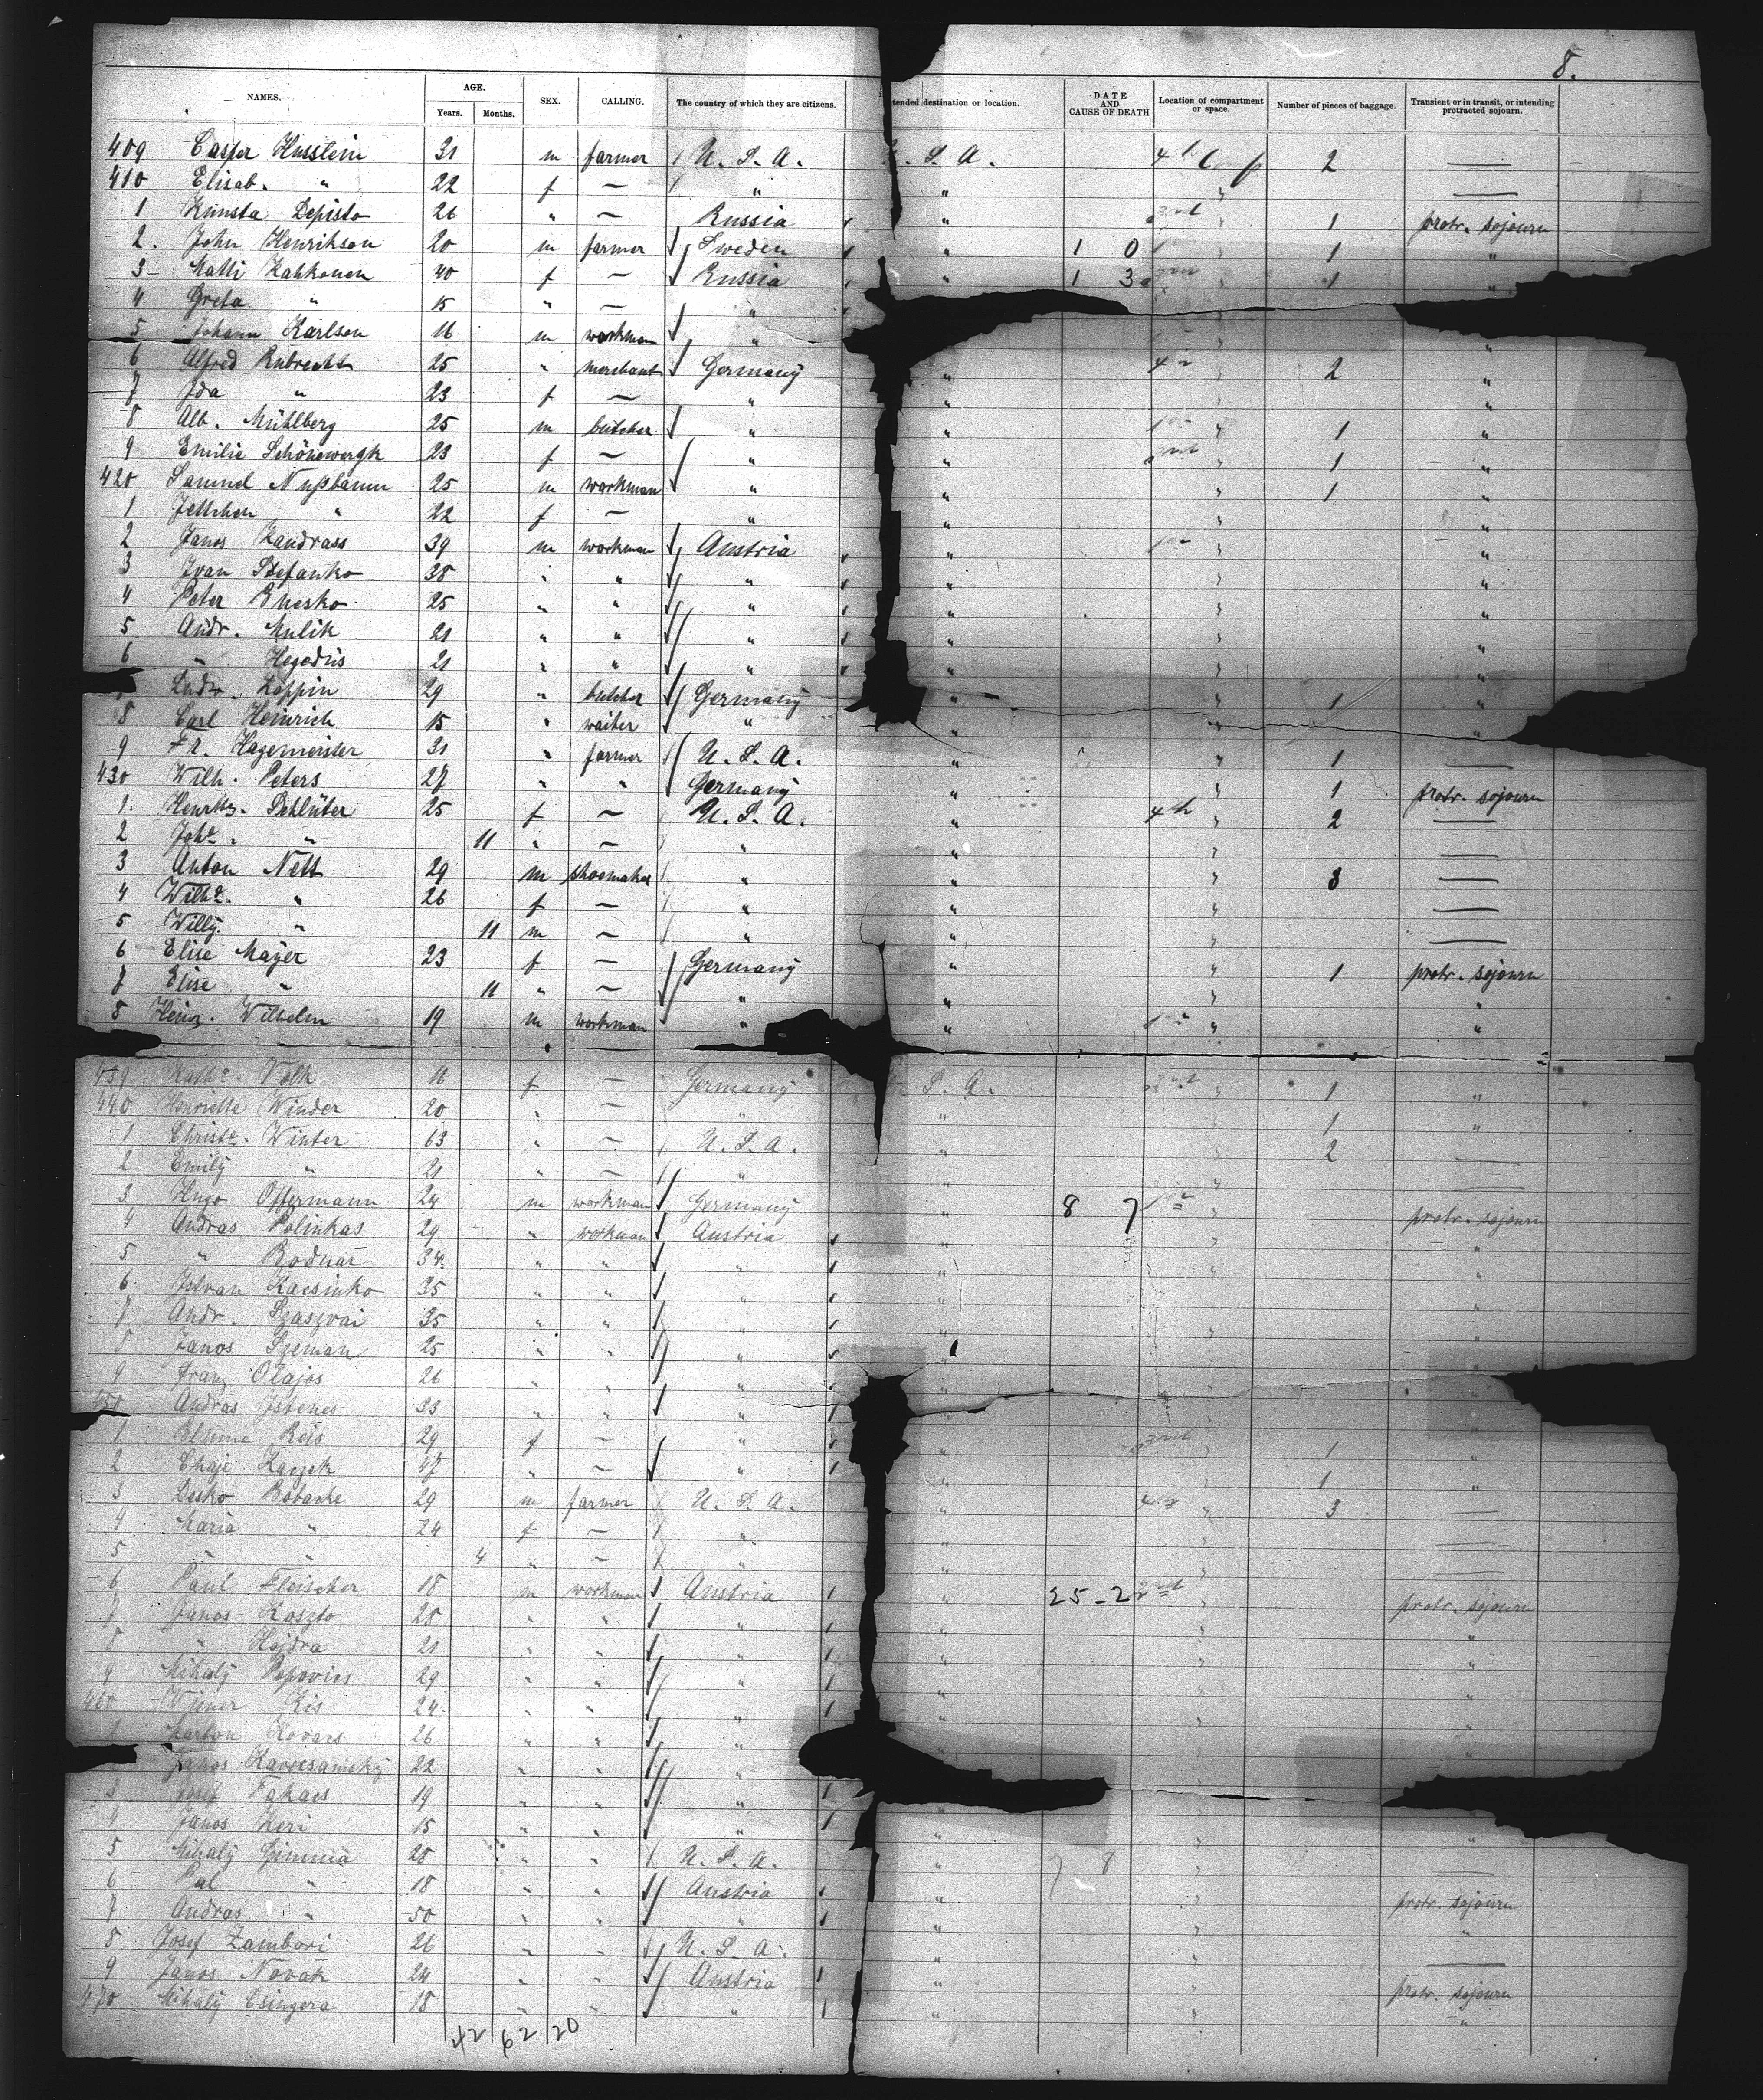 8.
NAMES. AGE. SEX. CALLING. The country of which they are citizens. tended destination or location. DATE AND CAUSE OF DEATH Location of compartment or space. Number of pieces of baggage. Transient or in transit, or intending protracted sojourn.
Years. Months.
409 Casper Husslein 31 m farmer U. S. A. . S. A. 4th Comp 2 —
410 Elisab. " 22 f — " " " —
1 Kunsta Depisto 26 " — Russia " " 1 protr. sojourn
2. John Henrikson 20 m farmer Sweden " 1 0 " 1 "
3 Matti Kahkonen 40 f — Russia " 1 3 " 1 "
4 Greta " 15 " — "
5 Johann Karlson 16 m workman " " "
6 Alfred Rubrecht 25 " merchant Germany " 4 " 2 "
7 Ida " 23 f — " " " "
8 Alb. Mühlberg 25 m butcher " " " 1 "
9 Emilie Schönewergk 23 f — " " " 1 "
420 Samuel Nußbaum 25 m workman " " " 1 "
1 Jettchen " 22 f — " " " "
2 Janos Kandrass 39 m workman Austria " " "
3 Ivan Stefanko 38 " " " " " "
4 Peter Enesko 25 " " " " " "
5 Andr. Mulik 21 " " " " " "
6 " Hegedüs 21 " " " " " "
Ludw. Koppin 29 " butcher Germany " " 1 "
8 Carl Heinrich 15 " waiter " " " "
9 Fr. Hagemeister 31 " farmer U. S. A. " " 1 —
430 Wilh. Peters 27 " " Germany " " 1 protr. sojourn
1. Schlüter 25 f — U. S. A. " 4th " 2 —
2 Johe. " 11 " — " " " —
3 Anton Nett 29 m shoemaker " " " 3 —
4 Wilhe. " 26 f — " " " —
5 Willy " 11 m — " " " —
6 Elise Mayer 23 f — Germany " " 1 protr. sojourn
7 Elise " 11 " — " " " "
8 Heinr. Wilhelm 19 m workman " " " "
439 Kathe. Volk 16 f — Germany S. A. " 1 "
440 Henriette Winder 20 " — " " " 1 "
1 Christe. Winter 63 " — U. S. A. " " 2 —
2 Emily " 21 " — " " " —
3 Hugo Offermann 24 m workman Germany " 8 7 " protr. sojourn
4 Andras Polinkas 29 " workman Austria " " "
5 " Bodnar 34 " " " " " "
6 Istvan Kacsinko 35 " " " " " "
7 Andr. Szaszvai 35 " " " " " "
8 Janos Szeman 25 " " " " " "
9 Franz Olajos 26 " " " " "
450 Andras Istenes 33 " " " " "
1 Blume Reis 29 f — " " " 1 "
2 Chaje Kaczek 47 " — " " " 1 "
3 Lesko Bobache 29 m farmer U. S. A. " 4th " 3 —
4 Maria " 24 f — " " " —
5 " " 4 " — " " " —
6 Paul Fleischer 18 m workman Austria " 25-2 " protr. sojourn
7 Janos Koszto 28 " " " " " "
8 " Hajdra 21 " " " " " "
9 Mihaly Popovics 29 " " " " " "
460 Kis 24 " " " " " "
Kovacs 26 " " " " " "
Janos 22 " " " "
3 Josef Takacs 19 " " "
4 Janos Keri 15 " " " " " "
5 Mihaly 28 " " U. S. A. " 7 8 " —
6 Pal " 18 " " Austria " " protr. sojourn
7 Andras " 50 " " " " " "
8 Josef Zambori 26 " " U. S. A. " " —
9 Janos Novak 24 " " Austria " " protr. sojourn
470 Mihaly Csingera 18 " " " " " "
42 62 20